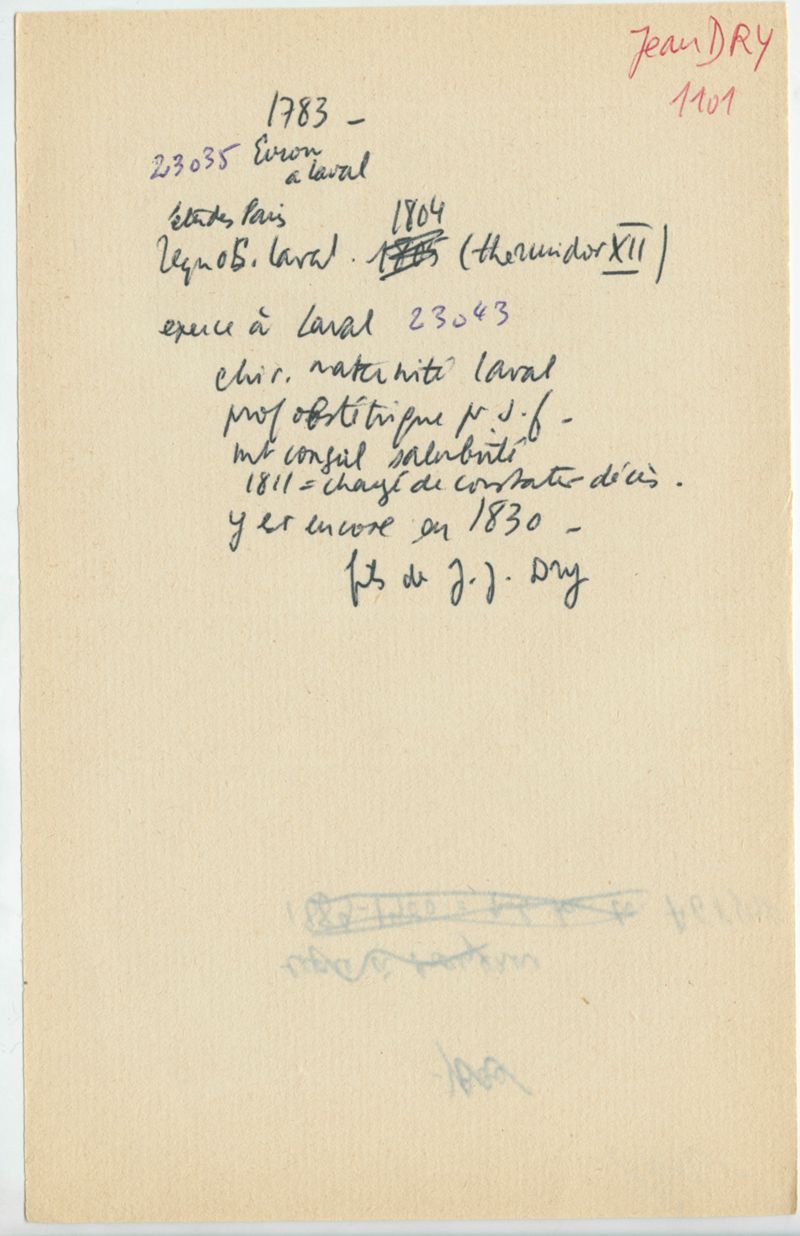 Jean DRY
1101
1783 -
23035 Evron
a Laval
études Paris
1804
Laval. 1805 (thermidor XII)
exerce à Laval 23043
chir. maternité Laval
prof obstétrique pr s.f -
mb conseil salubrité
1811 = chargé de constater décès.
y est encore en 1830 -
fils de J. J. Dry